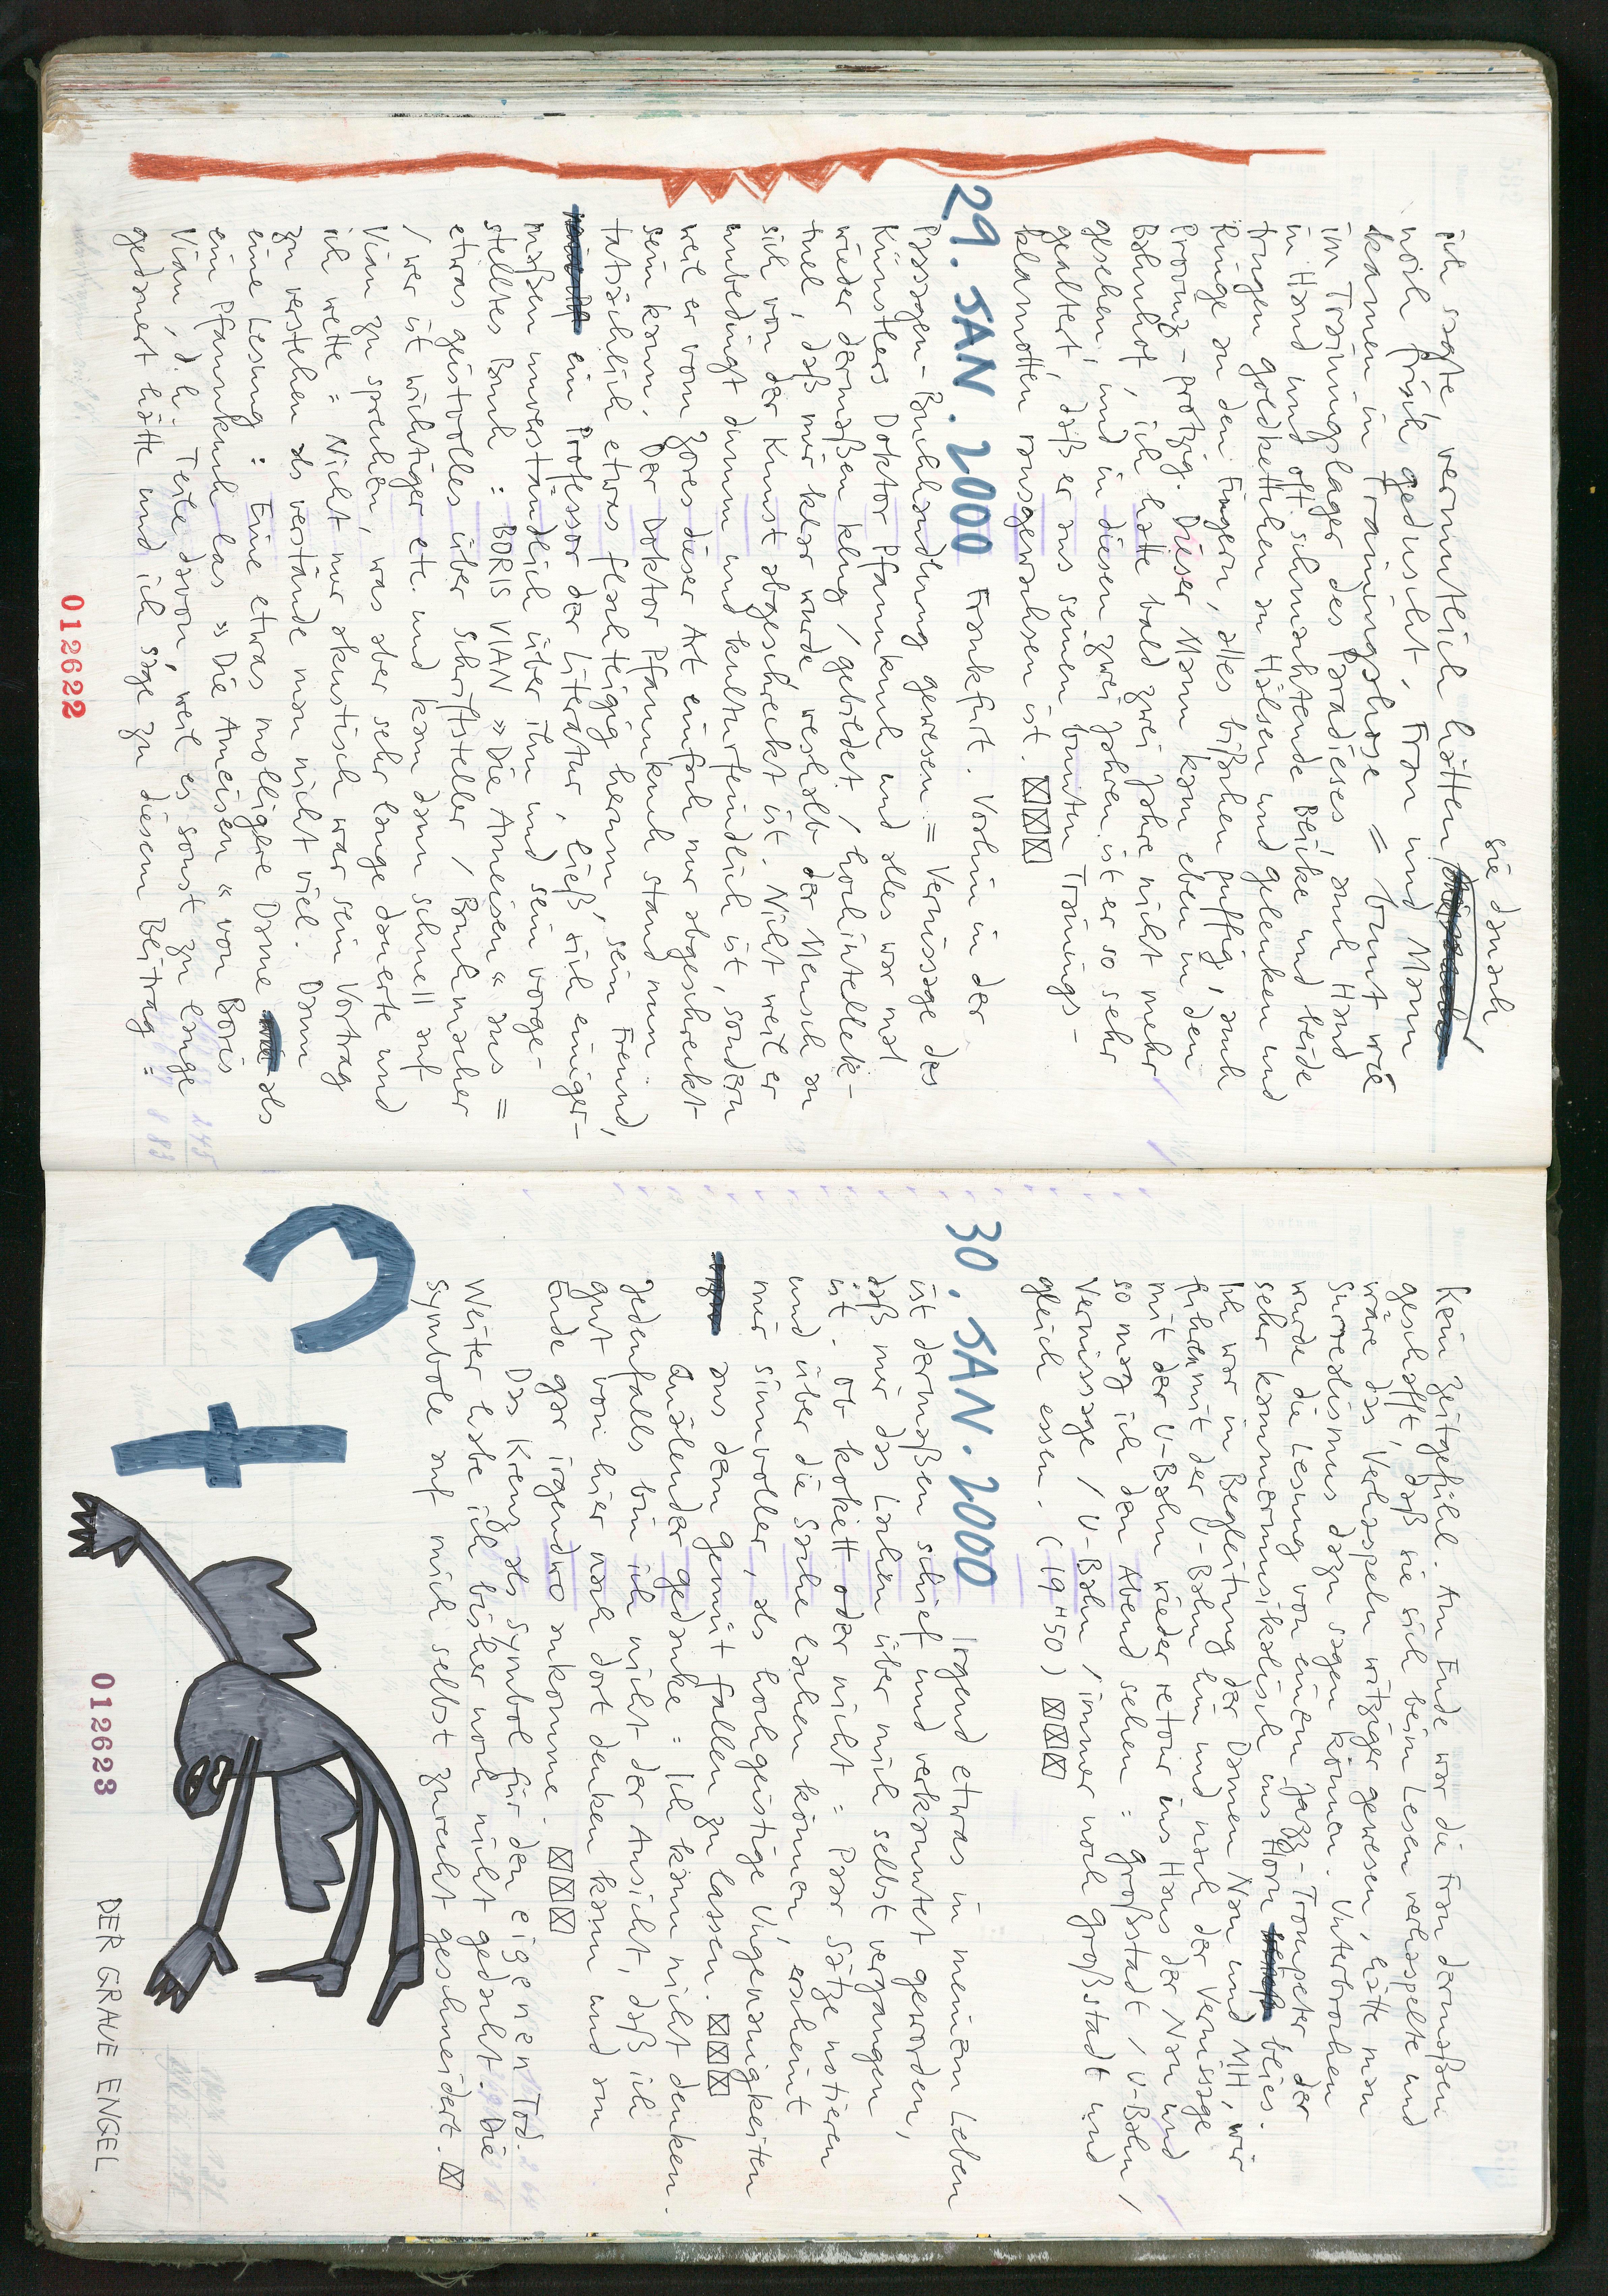 sie auch
ich sagte, vermutlich hätten
noch frisch geduscht. Frau und Mann
kamen in Trainingshose = bunt wie
im Trainingslager des Paradieses, auch Hand
in Hand und oft schmachtende Blicke und beide
trugen Goldkettchen an Hälsen und Gelenken und
Ringe an den Fingern, alles bißchen puffig, auch
Provinz-protzig. Dieser Mann kam eben in den
Bahnhof, ich hatte bald zwei Jahre nicht mehr
gesehen, und in diesen zwei Jahren ist er so sehr
gealtert, daß er aus seinen bunten Trainings-
klamotten rausgewachsen ist. ☒☒☒
29. JAN. 2000 Frankfurt. Vorhin in der
Passagen-Buchhandlung gewesen = Vernissage des
Künstlers Doktor Pfannkuch und alles war mal
wieder dermaßen klug / gebildet / hochintellek-
tuell, daß mir klar wurde, weshalb der Mensch an
sich von der Kunst abgeschreckt ist. Nicht weil er
unbedingt dumm und kulturfeindlich ist, sondern
weil er vom Zores dieser Art einfach nur abgeschreckt
sein kann. Der Doktor Pfannkuch stand nun
tatsächlich etwas flachteigig herum, sein Freund,
ein Professor der Literatur, ließ sich einiger-
maßen unverständlich über ihn und sein vorge-
stelltes Buch : BORIS VIAN » Die Ameisen « aus =
etwas geistvolles über Schriftsteller / Buchmacher
/ wer ist wichtiger etc. und kam dann schnell auf
Vian zu sprechen, was aber sehr lange dauerte und
ich wette = Nicht nur akustisch war sein Vortrag
zu verstehen als verstände man nicht viel. Dann
eine Lesung : Eine etwas molligere Dame als
ein Pfannkuch las » Die Ameisen « von Boris
Vian, d.h. Teile davon, weil es sonst zu lange
gedauert hätte und ich sage zu diesem Beitrag =
012622
Kein Zeitgefühl. Am Ende war die Frau dermaßen
geschafft, daß sie sich beim Lesen verhaspelte und
wäre das Verhaspeln witziger gewesen, hätte man
Surrealismus dazu sagen können. Unterbrochen
wurde die Lesung von einem Jazz-Trompeter der
sehr kammermusikalisch ins Horn blies.
Ich war in Begleitung der Damen Nau und MH, wir
fuhren mit der U-Bahn hin und nach der Vernissage
mit der U-Bahn wieder retour ins Haus der Nau und
so mag ich den Abend sehen = Großstadt / U-Bahn /
Vernissage / U-Bahn / immer noch Großstadt und
gleich essen. (19 H 50) ☒☒☒
30. JAN. 2000 Irgend etwas in meinem Leben
ist dermaßen schief und verkanntet geworden,
daß mir das Lachen über mich selbst vergangen
ist. Ob kokett oder nicht = Paar Sätze notieren
und über die Sache lachen können, erscheint
mir sinnvoller, als hochgeistige Ungenauigkeiten
aus dem Gemüt fallen zu lassen. ☒☒☒
Quälender Gedanke = Ich kann nicht denken.
Jedenfalls bin ich nicht der Ansicht, daß ich
gut von hier nach dort denken kann und am
Ende gar irgendwo ankomme. ☒☒☒
Das Kreuz als Symbol für den eigenen Tod.
Weiter habe ich bisher noch nicht gedacht. Die
Symbole auf mich selbst zurecht geschneidert. ☒
DER GRAUE ENGEL
012623